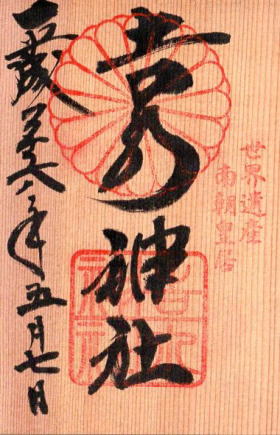 世界遺産
南朝皇居
吉水神社
吉水
神社
平成 年五月七日